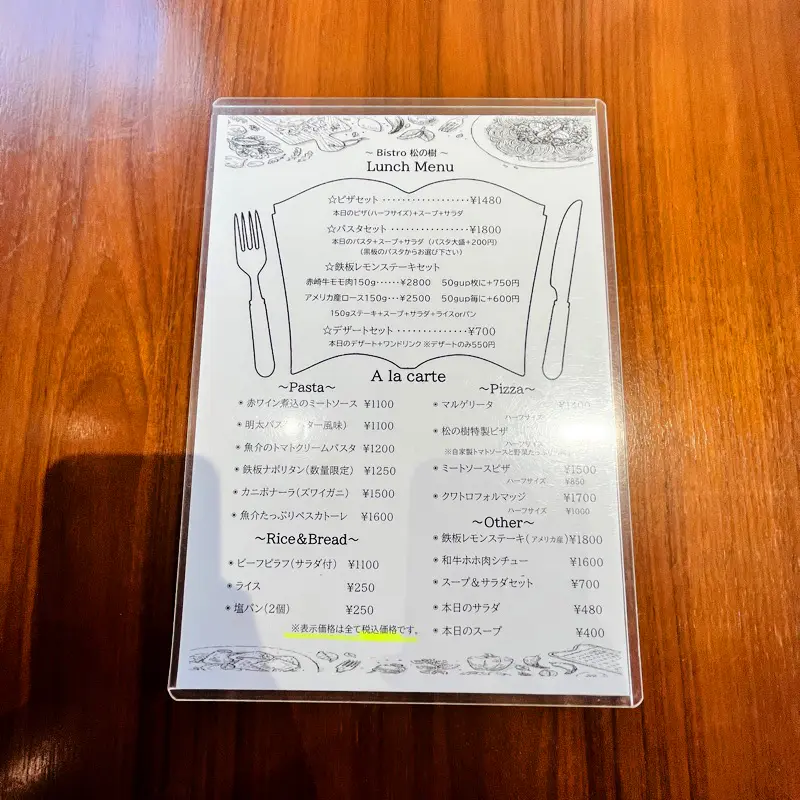 ～ Bistro 松の樹 ～
Lunch Menu
☆ピザセット ･･････････････････¥1480
本日のピザ(ハーフサイズ)+スープ+サラダ
☆パスタセット ････････････････¥1800
本日のパスタ+スープ+サラダ (パスタ大盛+200円)
(黒板のパスタからお選び下さい)
☆鉄板レモンステーキセット
赤崎牛モモ肉150g･･････¥2800 50gup枚に+750円
アメリカ産ロース150g･･･¥2500 50gup毎に+600円
150gステーキ+スープ+サラダ+ライスorパン
☆デザートセット ･････････････¥700
本日のデザート+ワンドリンク ※デザートのみ550円
A la carte
～Pasta～
赤ワイン煮込のミートソース ¥1100
明太パス ター風味) ¥1100
魚介のトマトクリームパスタ ¥1200
鉄板ナポリタン(数量限定) ¥1250
カニボナーラ(ズワイガニ) ¥1500
魚介たっぷりペスカトーレ ¥1600
～Rice&Bread～
ビーフピラフ(サラダ付) ¥1100
ライス ¥250
塩パン(2個) ¥250
※表示価格は全て税込価格です。
～Pizza～
マルゲリータ
ハーフサイズ
松の樹特製ピザ
ハーフサイズ
※自家製トマトソースと野菜たっぷり
ミートソースピザ ¥1500
ハーフサイズ ¥850
クワトロフォルマッジ ¥1700
ハーフサイズ ¥1000
～Other～
鉄板レモンステーキ(アメリカ産)¥1800
和牛ホホ肉シチュー ¥1600
スープ&サラダセット ¥700
本日のサラダ ¥480
本日のスープ ¥400